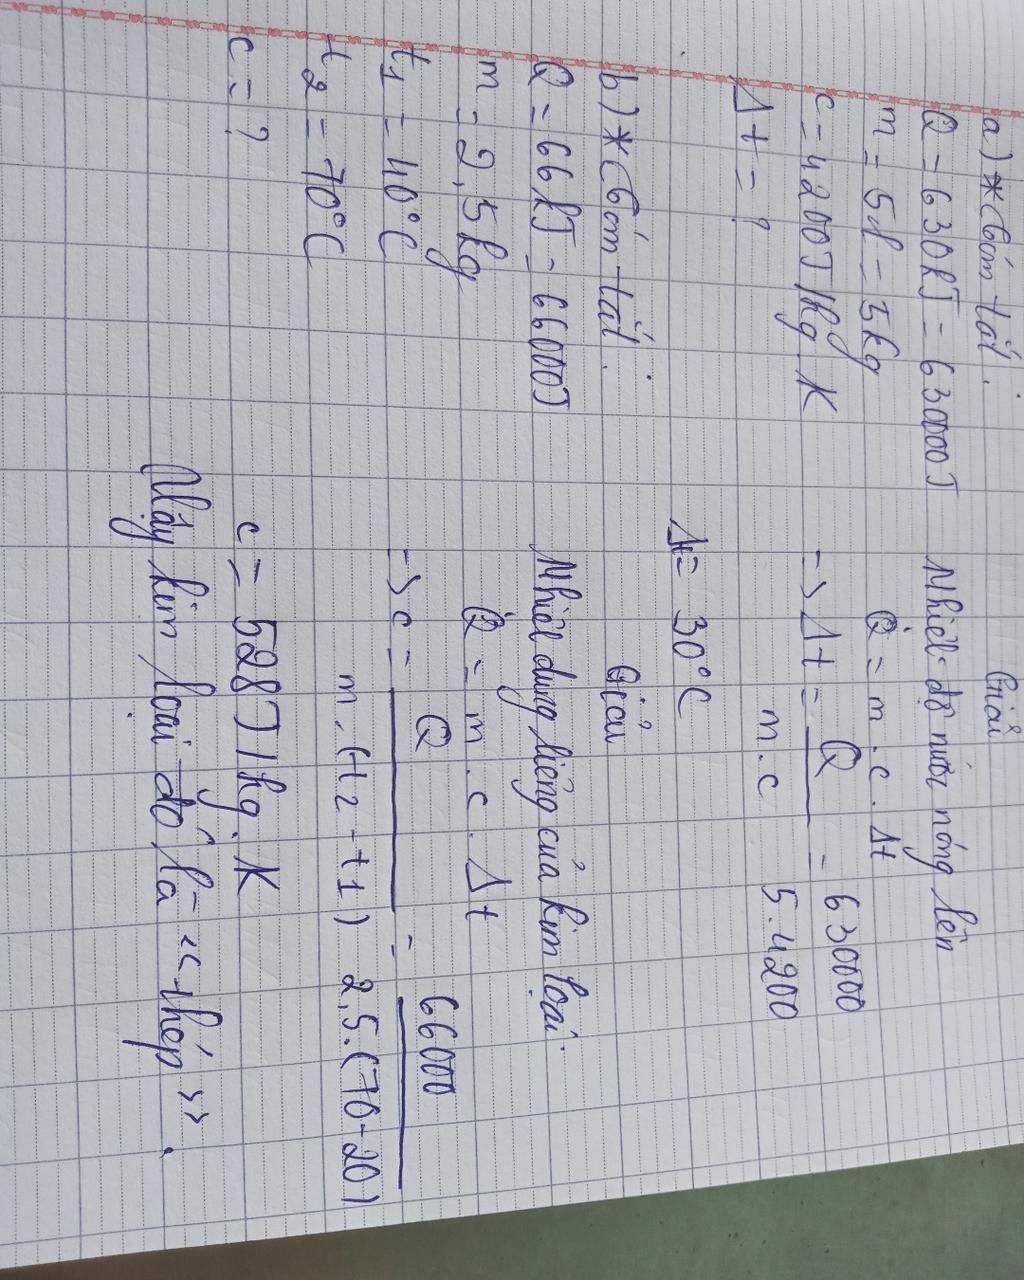 a) * Tóm tắt.
Q = 630kJ = 630000J
m = 5l = 5kg
c = 4200J/kg.K
Δt = ?
Giải
Nhiệt độ nước nóng lên
Q = m.c.Δt
=> Δt = Q / m.c = 630000 / 5.4200
Δt = 30°C
b) * Tóm tắt.
Q = 66kJ = 66000J
m = 2,5kg
t1 = 40°C
t2 = 70°C
c = ?
Giải
Nhiệt dung riêng của kim loại.
Q = m.c.Δt
=> c = Q / m.(t2 - t1) = 66000 / 2,5.(70-20)
c = 528J/kg.K
Vậy kim loại đó là << thép >>.